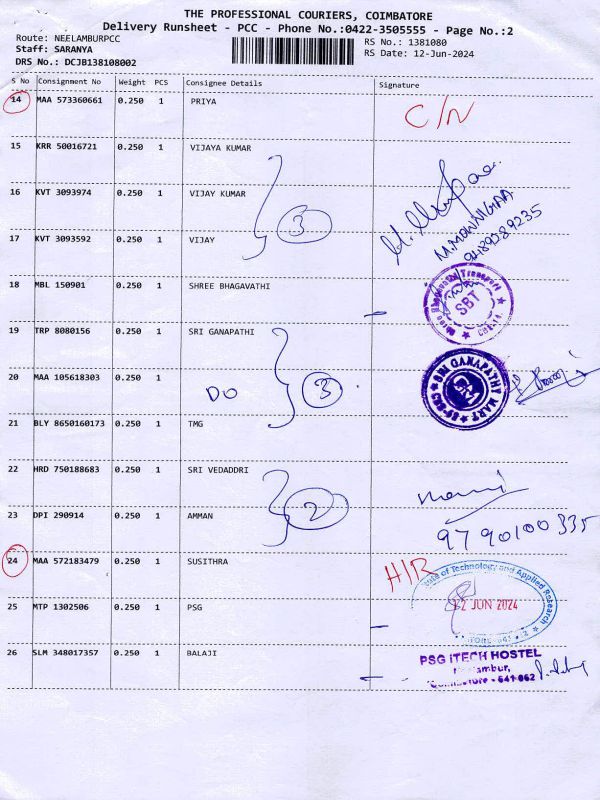 THE PROFESSIONAL COURIERS, COIMBATORE
Delivery Runsheet - PCC - Phone No.:0422-3505555 - Page No.:2
Route: NEELAMBURPCC
Staff: SARANYA
DRS No.: DCJB138108002
RS No.: 1381080
RS Date: 12-Jun-2024
S No Consignment No Weight PCS Consignee Details Signature
14 MAA 573360661 0.250 1 PRIYA C/N
15 KRR 50016721 0.250 1 VIJAYA KUMAR
16 KVT 3093974 0.250 1 VIJAY KUMAR
3
M.MOWNIGAA
9489389235
17 KVT 3093592 0.250 1 VIJAY
18 MBL 150901 0.250 1 SHREE BHAGAVATHI
Bhagavathi Transport
SBT
19 TRP 8080156 0.250 1 SRI GANAPATHI
20 MAA 105618303 0.250 1 DO 3
SRI GANAPATHI MART
21 BLY 8650160173 0.250 1 TMG
22 HRD 750188683 0.250 1 SRI VEDADDRI
2
23 DPI 290914 0.250 1 AMMAN
9790100335
24 MAA 572183479 0.250 1 SUSITHRA H/R
of Technology and Applied Research
25 MTP 1302506 0.250 1 PSG
12 JUN 2024
26 SLM 348017357 0.250 1 BALAJI
PSG iTECH HOSTEL
Coimbatore - 641 062